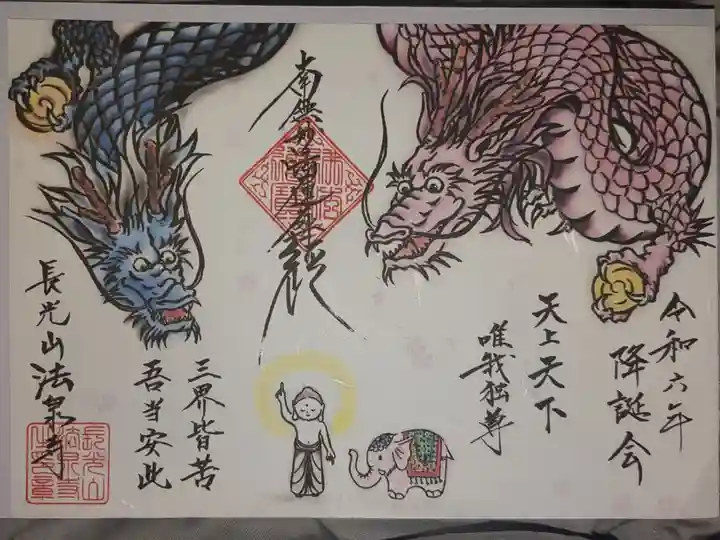 令和六年
降誕会
天上天下
唯我独尊
南無妙法蓮華経
三界皆苦
吾当安此
長光山法泉寺